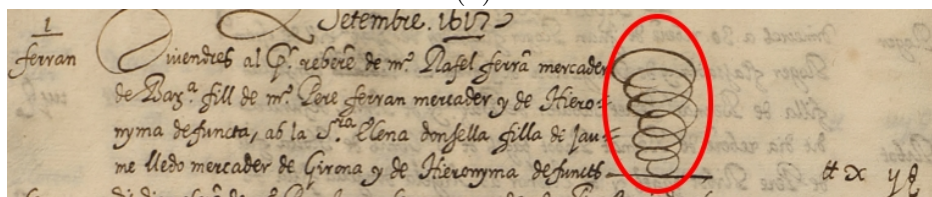 Setembre. 1617
1
ferran Divendres al p.r rebere de m.º Rafel ferrã mercader
de Bar.ª fill de m.º Pere ferran mercader y de Hiero-
nyma defuncta, ab la S.ra Elena donsella filla de Jau-
me lledo mercader de Girona y de Hieronyma defuncts